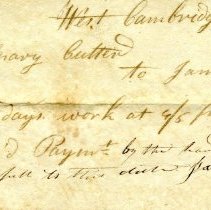 West Cambridg
Cutter
to Jam
days work at 9/5 p
d Paym.t by the han
full to this date